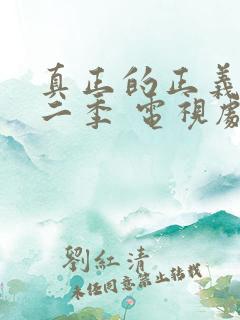 真正的正義
二季 電視
劉紅清
未經同意禁止轉載